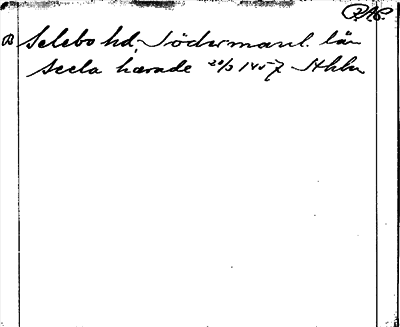 RAP.
B Selebo hd, Södermanl. län
Seela hærade 20/3 1457 Sthlm